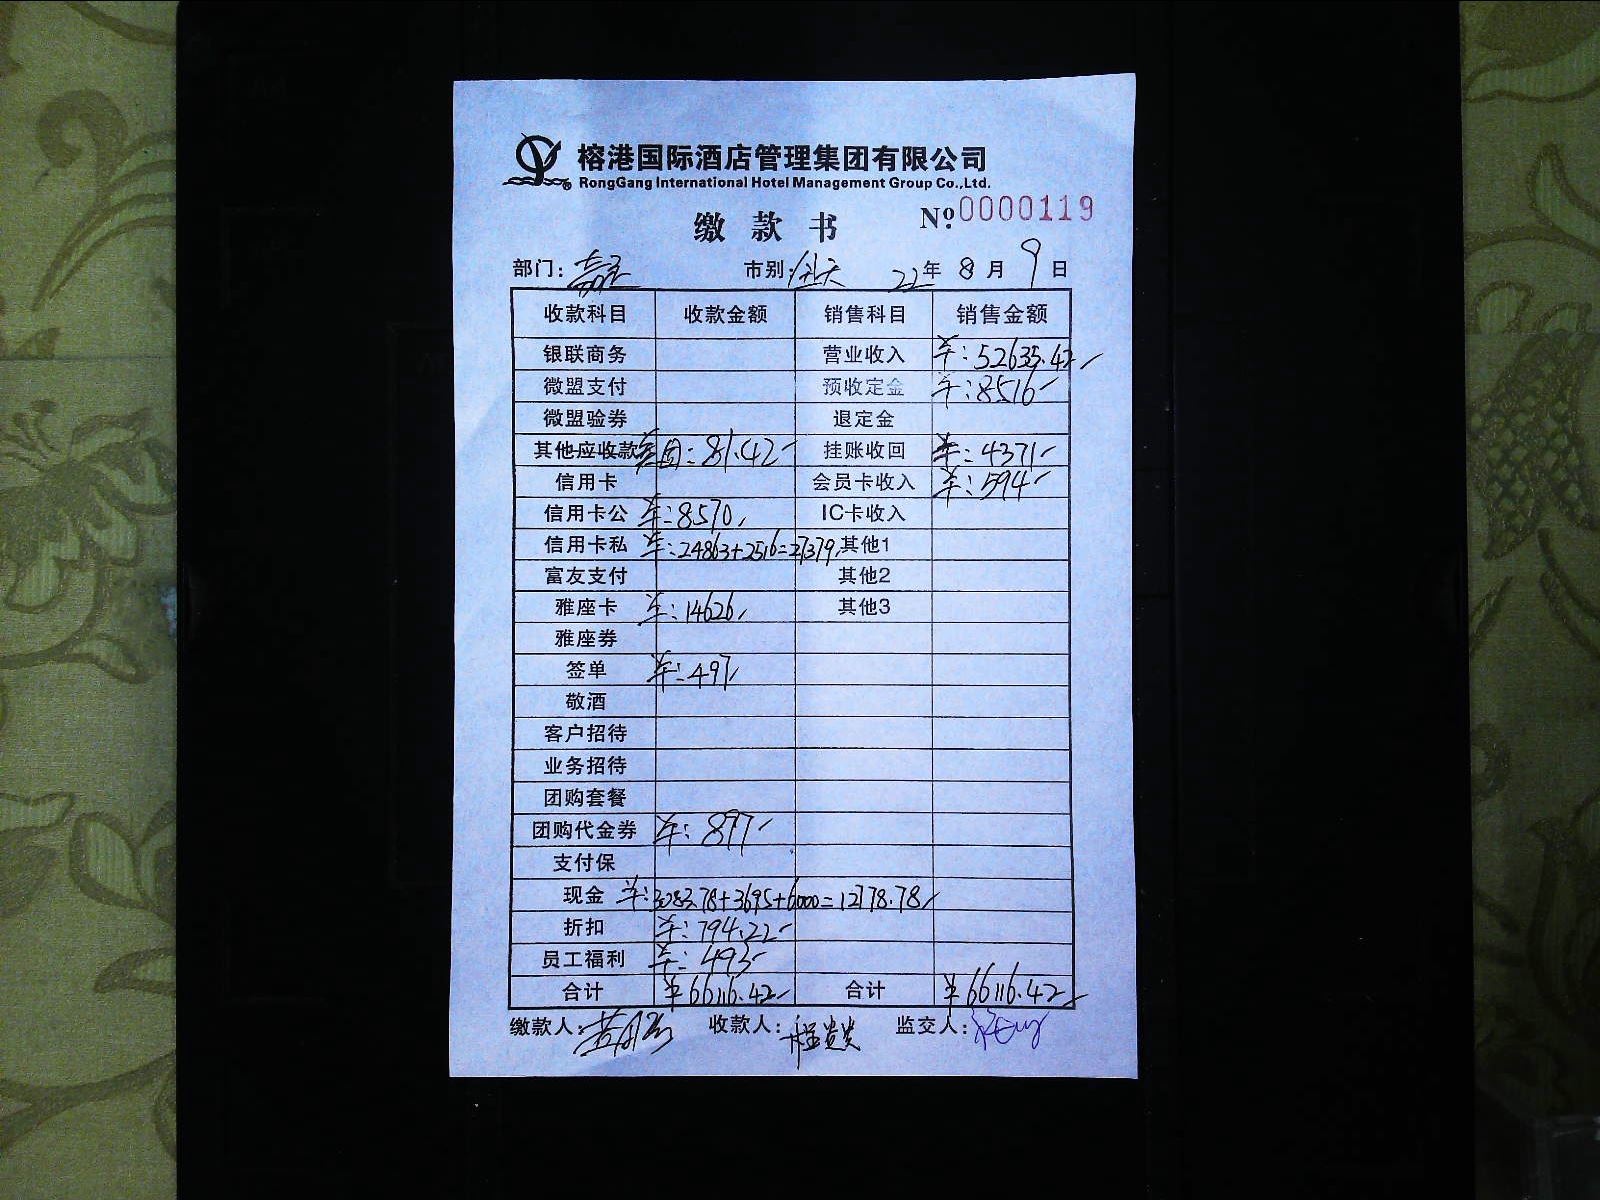 榕港国际酒店管理集团有限公司
RongGang International Hotel Management Group Co.,Ltd.
缴款书
№:0000119
部门:
市别:全天
22年8月9日
收款科目 收款金额 销售科目 销售金额
银联商务 营业收入 ¥:52635.42
微盟支付 预收定金 ¥:8516
微盟验券 退定金
其他应收款 美团:81.42 挂账收回 ¥:4371
信用卡 会员卡收入 ¥:594
信用卡公 ¥:8570 IC卡收入
信用卡私 ¥:24863+2516=27379 其他1
富友支付 其他2
雅座卡 ¥:14626 其他3
雅座券
签单 ¥:497
敬酒
客户招待
业务招待
团购套餐
团购代金券 ¥:897
支付保
现金 ¥:3083.78+3695+6000=12778.78
折扣 ¥:794.22
员工福利 ¥:493
合计 ¥66116.42 合计 ¥66116.42
缴款人: 收款人: 监交人: